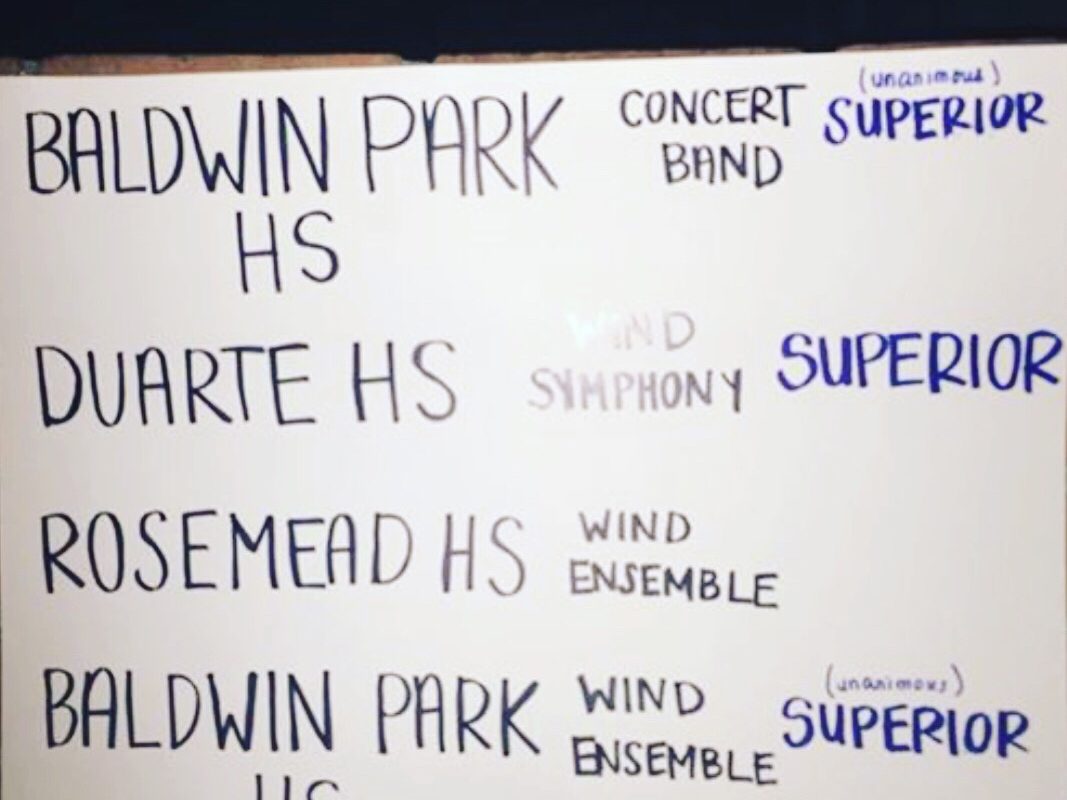 (unanimous)
BALDWIN PARK CONCERT SUPERIOR
BAND
HS
WIND
DUARTE HS SYMPHONY SUPERIOR
ROSEMEAD HS WIND
ENSEMBLE
(unanimous)
BALDWIN PARK WIND SUPERIOR
ENSEMBLE
HS